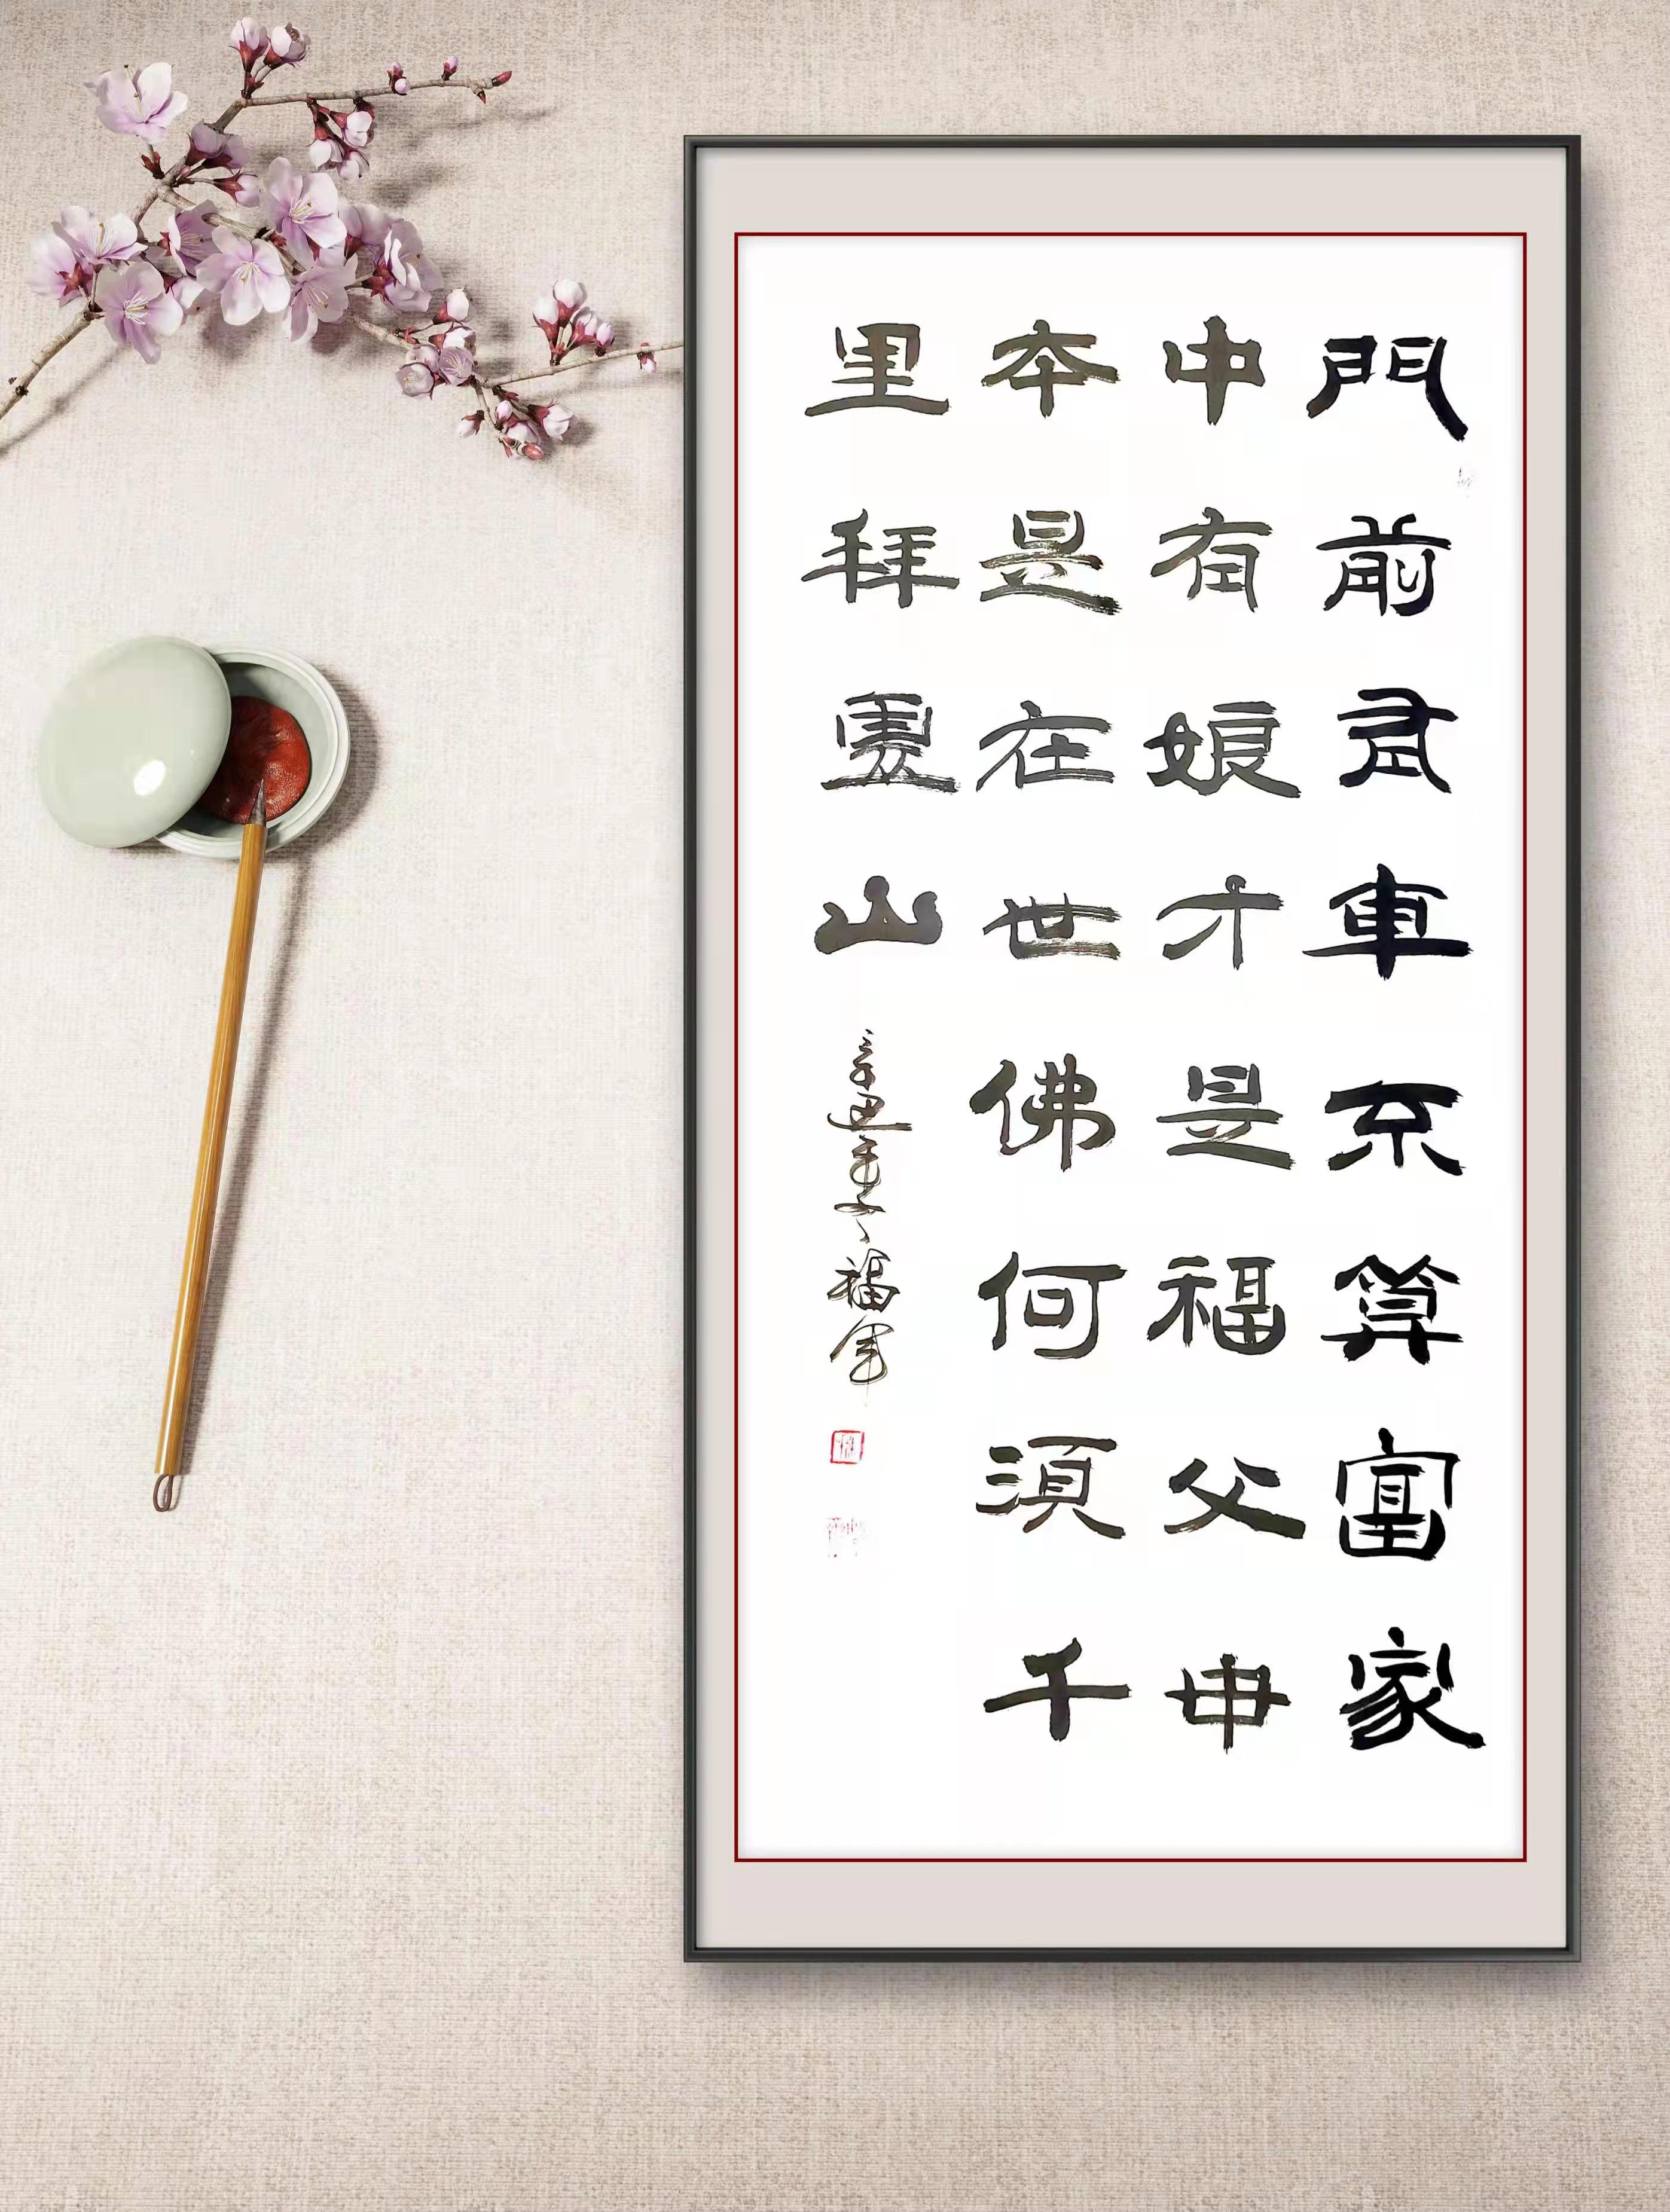 門前有車不算富家
中有娘才是福父母
本是在世佛何須千
里拜靈山
辛丑季冬福軍